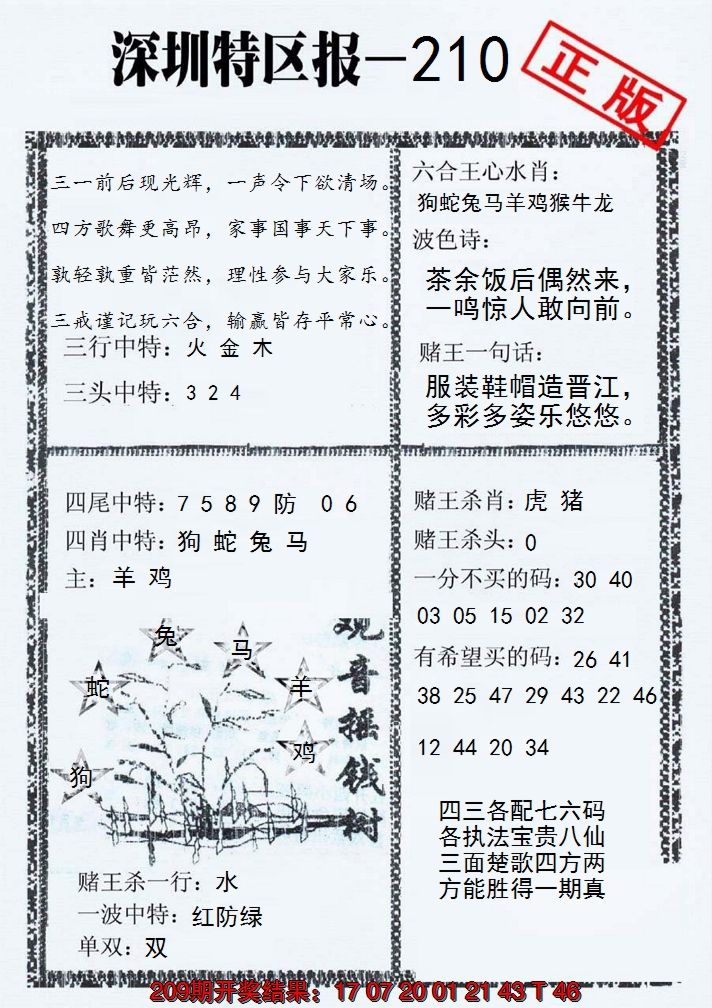 深圳特区报—210
正版
三一前后现光辉，一声令下欲清场。
四方歌舞更高昂，家事国事天下事。
孰轻孰重皆茫然，理性参与大家乐。
三戒谨记玩六合，输赢皆存平常心。
三行中特：火 金 木
三头中特：3 2 4
六合王心水肖：
狗蛇兔马羊鸡猴牛龙
波色诗：
茶余饭后偶然来，
一鸣惊人敢向前。
赌王一句话：
服装鞋帽造晋江，
多彩多姿乐悠悠。
四尾中特：7 5 8 9 防 0 6
四肖中特：狗 蛇 兔 马
主：羊 鸡
兔
马
蛇
羊
鸡
狗
观音摇钱树
赌王杀一行：水
一波中特：红防绿
单双：双
赌王杀肖：虎 猪
赌王杀头：0
一分不买的码：30 40
03 05 15 02 32
有希望买的码：26 41
38 25 47 29 43 22 46
12 44 20 34
四三各配七六码
各执法宝贵八仙
三面楚歌四方两
方能胜得一期真
209期开奖结果：17 07 20 01 21 43 T 46